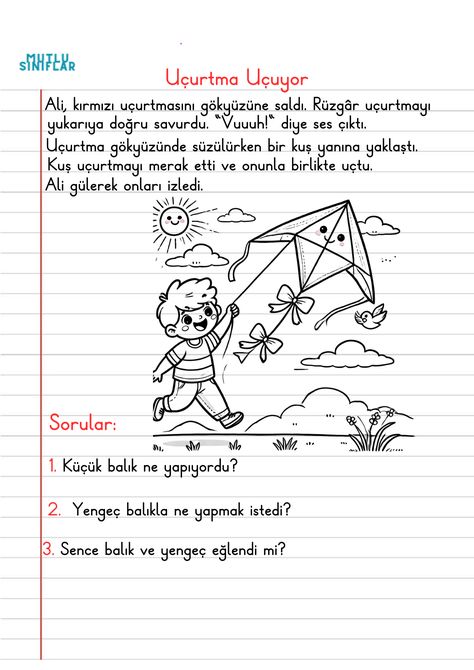 MUTLU
SINIFLAR
Uçurtma Uçuyor
Ali, kırmızı uçurtmasını gökyüzüne saldı. Rüzgâr uçurtmayı
yukarıya doğru savurdu. “Vuuuh!“ diye ses çıktı.
Uçurtma gökyüzünde süzülürken bir kuş yanına yaklaştı.
Kuş uçurtmayı merak etti ve onunla birlikte uçtu.
Ali gülerek onları izledi.
Sorular:
1. Küçük balık ne yapıyordu?
2. Yengeç balıkla ne yapmak istedi?
3. Sence balık ve yengeç eğlendi mi?